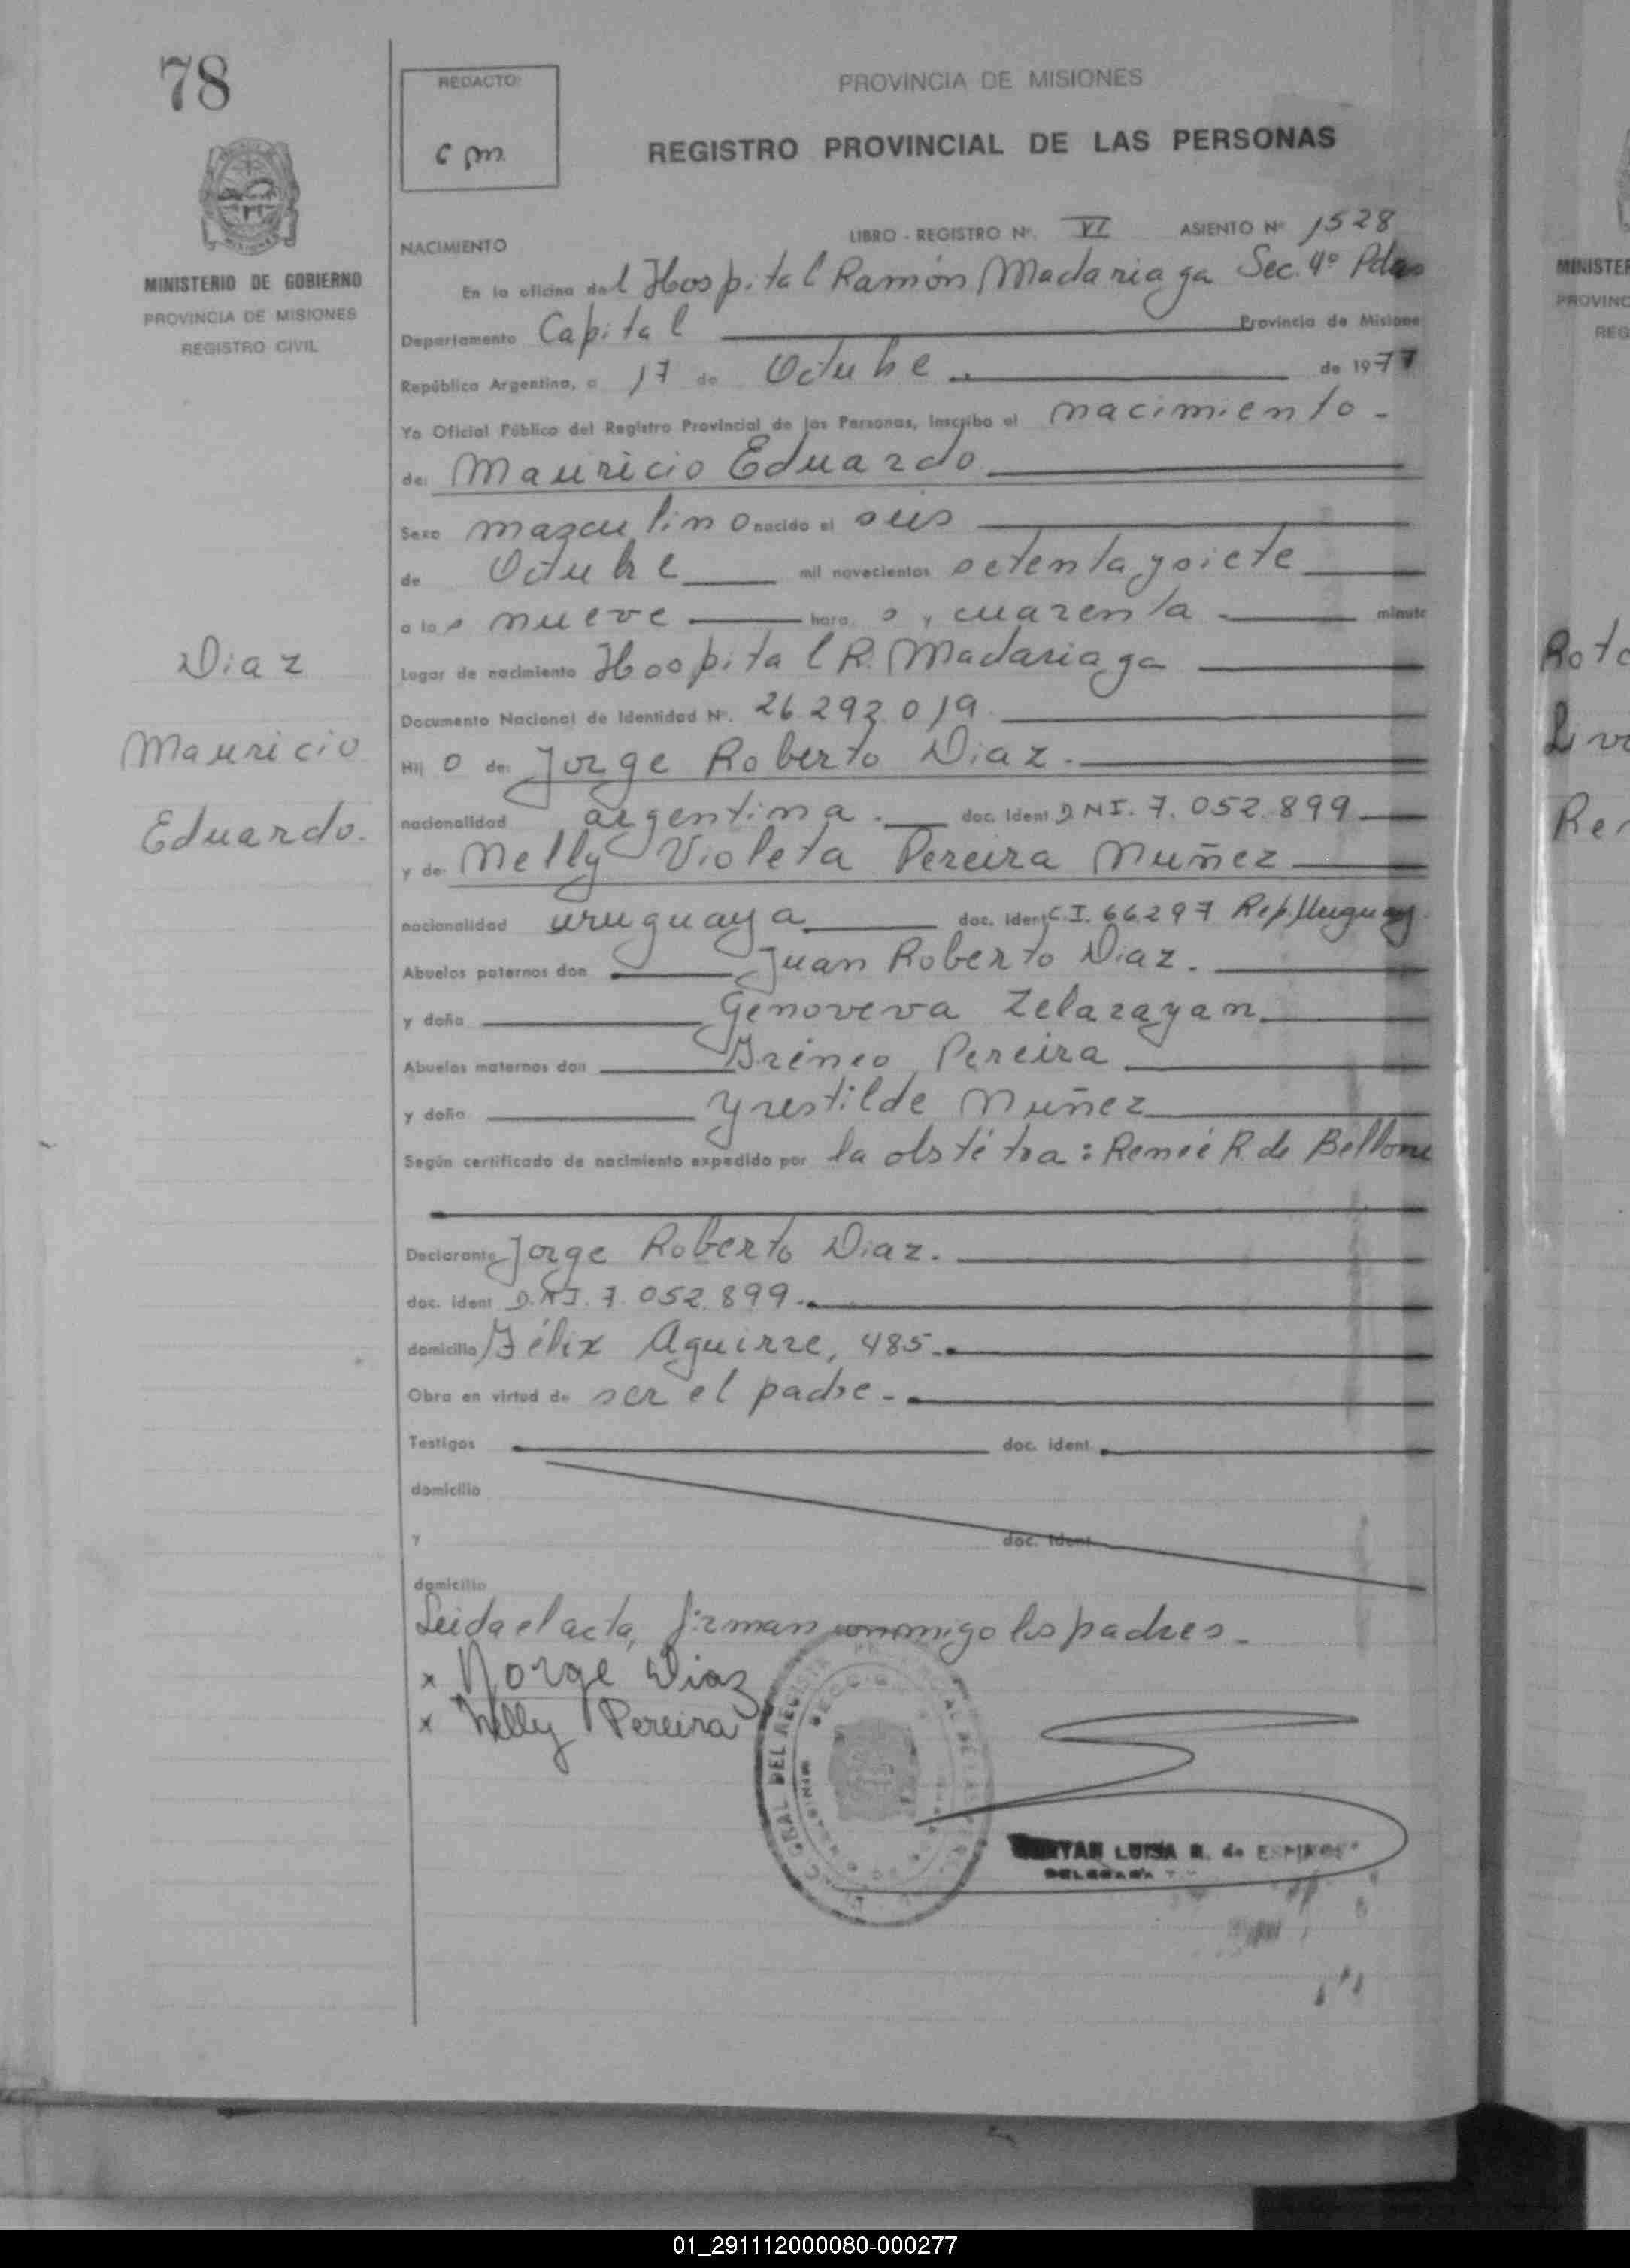 78
REDACTO:
cpm
PROVINCIA DE MISIONES
REGISTRO PROVINCIAL DE LAS PERSONAS
MINISTERIO DE GOBIERNO
PROVINCIA DE MISIONES
REGISTRO CIVIL
NACIMIENTO
LIBRO - REGISTRO Nº. VI ASIENTO Nº 1528
En la oficina del Hospital Ramón Madariaga Sec. 4º Pdas
Departamento Capital Provincia de Misione
República Argentina, a 17 de Octubre . de 1977
Yo Oficial Público del Registro Provincial de las Personas, inscribo el nacimiento -
de: Mauricio Eduardo
Sexo masculino nacido el seis
de Octubre mil novecientos setenta y siete
a las nueve hora s y cuarenta minuto
Lugar de nacimiento Hospital R. Madariaga
Documento Nacional de Identidad Nº. 26.292.019.
Hij o de: Jorge Roberto Diaz.
nacionalidad argentina. doc. Ident D.N.I. 7.052.899
y de: Nelly Violeta Pereira Nuñez
nacionalidad uruguaya doc. Ident C.I. 66.297 Rep. Uruguay.
Abuelos paternos don Juan Roberto Diaz.
y doña Genoveva Zelarayan.
Abuelos maternos don Irineo Pereira
y doña Yrestilde Nuñez
Según certificado de nacimiento expedido por la obstétra: Renée R de Bellone
Declarante Jorge Roberto Diaz.
doc. ident D.N.I. 7.052.899.
domicilio Félix Aguirre, 485.
Obra en virtud de ser el padre -.
Testigos doc. ident.
domicilio
y doc. ident
domicilio
Leida el acta, firman conmigo los padres.
x Jorge Diaz
x Nelly Pereira
LUISA R. de
Diaz
Mauricio
Eduardo.
MINISTER
PROVINC
REG
Roto
Re
01_291112000080-000277